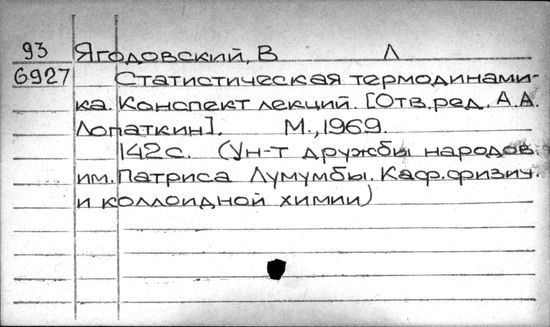 93 Ягодовский, В Л
6927 Статистическая термодинами-
ка. Конспект лекций. [Отв.ред. А.А.
Лопаткин]. М., 1969.
142с. (Ун-т дружбы народов
им. Патриса Лумумбы. Каф.физич.
и коллоидной химии)